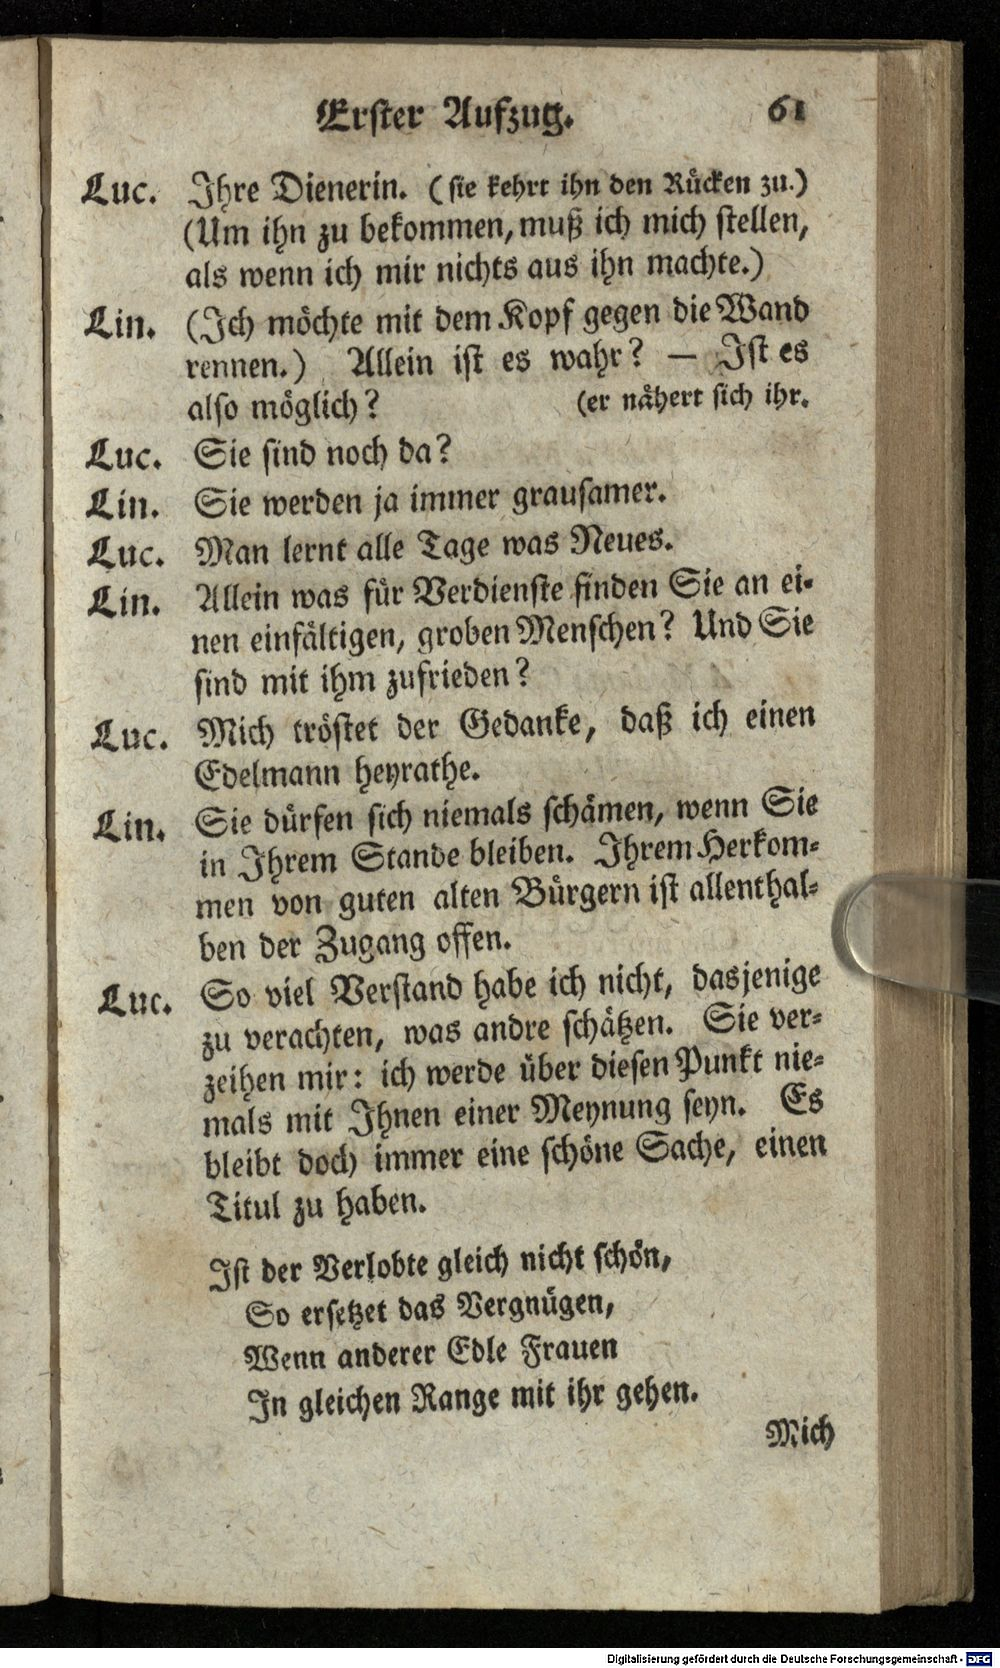 Erster Aufzug. 61
Luc. Ihre Dienerin. (sie kehrt ihn den Rücken zu.)
(Um ihn zu bekommen, muß ich mich stellen,
als wenn ich mir nichts aus ihn machte.)
Lin. (Ich möchte mit dem Kopf gegen die Wand
rennen.) Allein ist es wahr? — Ist es
also möglich? (er nähert sich ihr.
Luc. Sie sind noch da?
Lin. Sie werden ja immer grausamer.
Luc. Man lernt alle Tage was Neues.
Lin. Allein was für Verdienste finden Sie an ei-
nen einfältigen, groben Menschen? Und Sie
sind mit ihm zufrieden?
Luc. Mich tröstet der Gedanke, daß ich einen
Edelmann heyrathe.
Lin. Sie dürfen sich niemals schämen, wenn Sie
in Ihrem Stande bleiben. Ihrem Herkom-
men von guten alten Bürgern ist allenthal-
ben der Zugang offen.
Luc. So viel Verstand habe ich nicht, dasjenige
zu verachten, was andre schätzen. Sie ver-
zeihen mir: ich werde über diesen Punkt nie-
mals mit Ihnen einer Meynung seyn. Es
bleibt doch immer eine schöne Sache, einen
Titul zu haben.
Ist der Verlobte gleich nicht schön,
So ersetzet das Vergnügen,
Wenn anderer Edle Frauen
In gleichen Range mit ihr gehen.
Mich
Digitalisierung gefördert durch die Deutsche Forschungsgemeinschaft - DFG